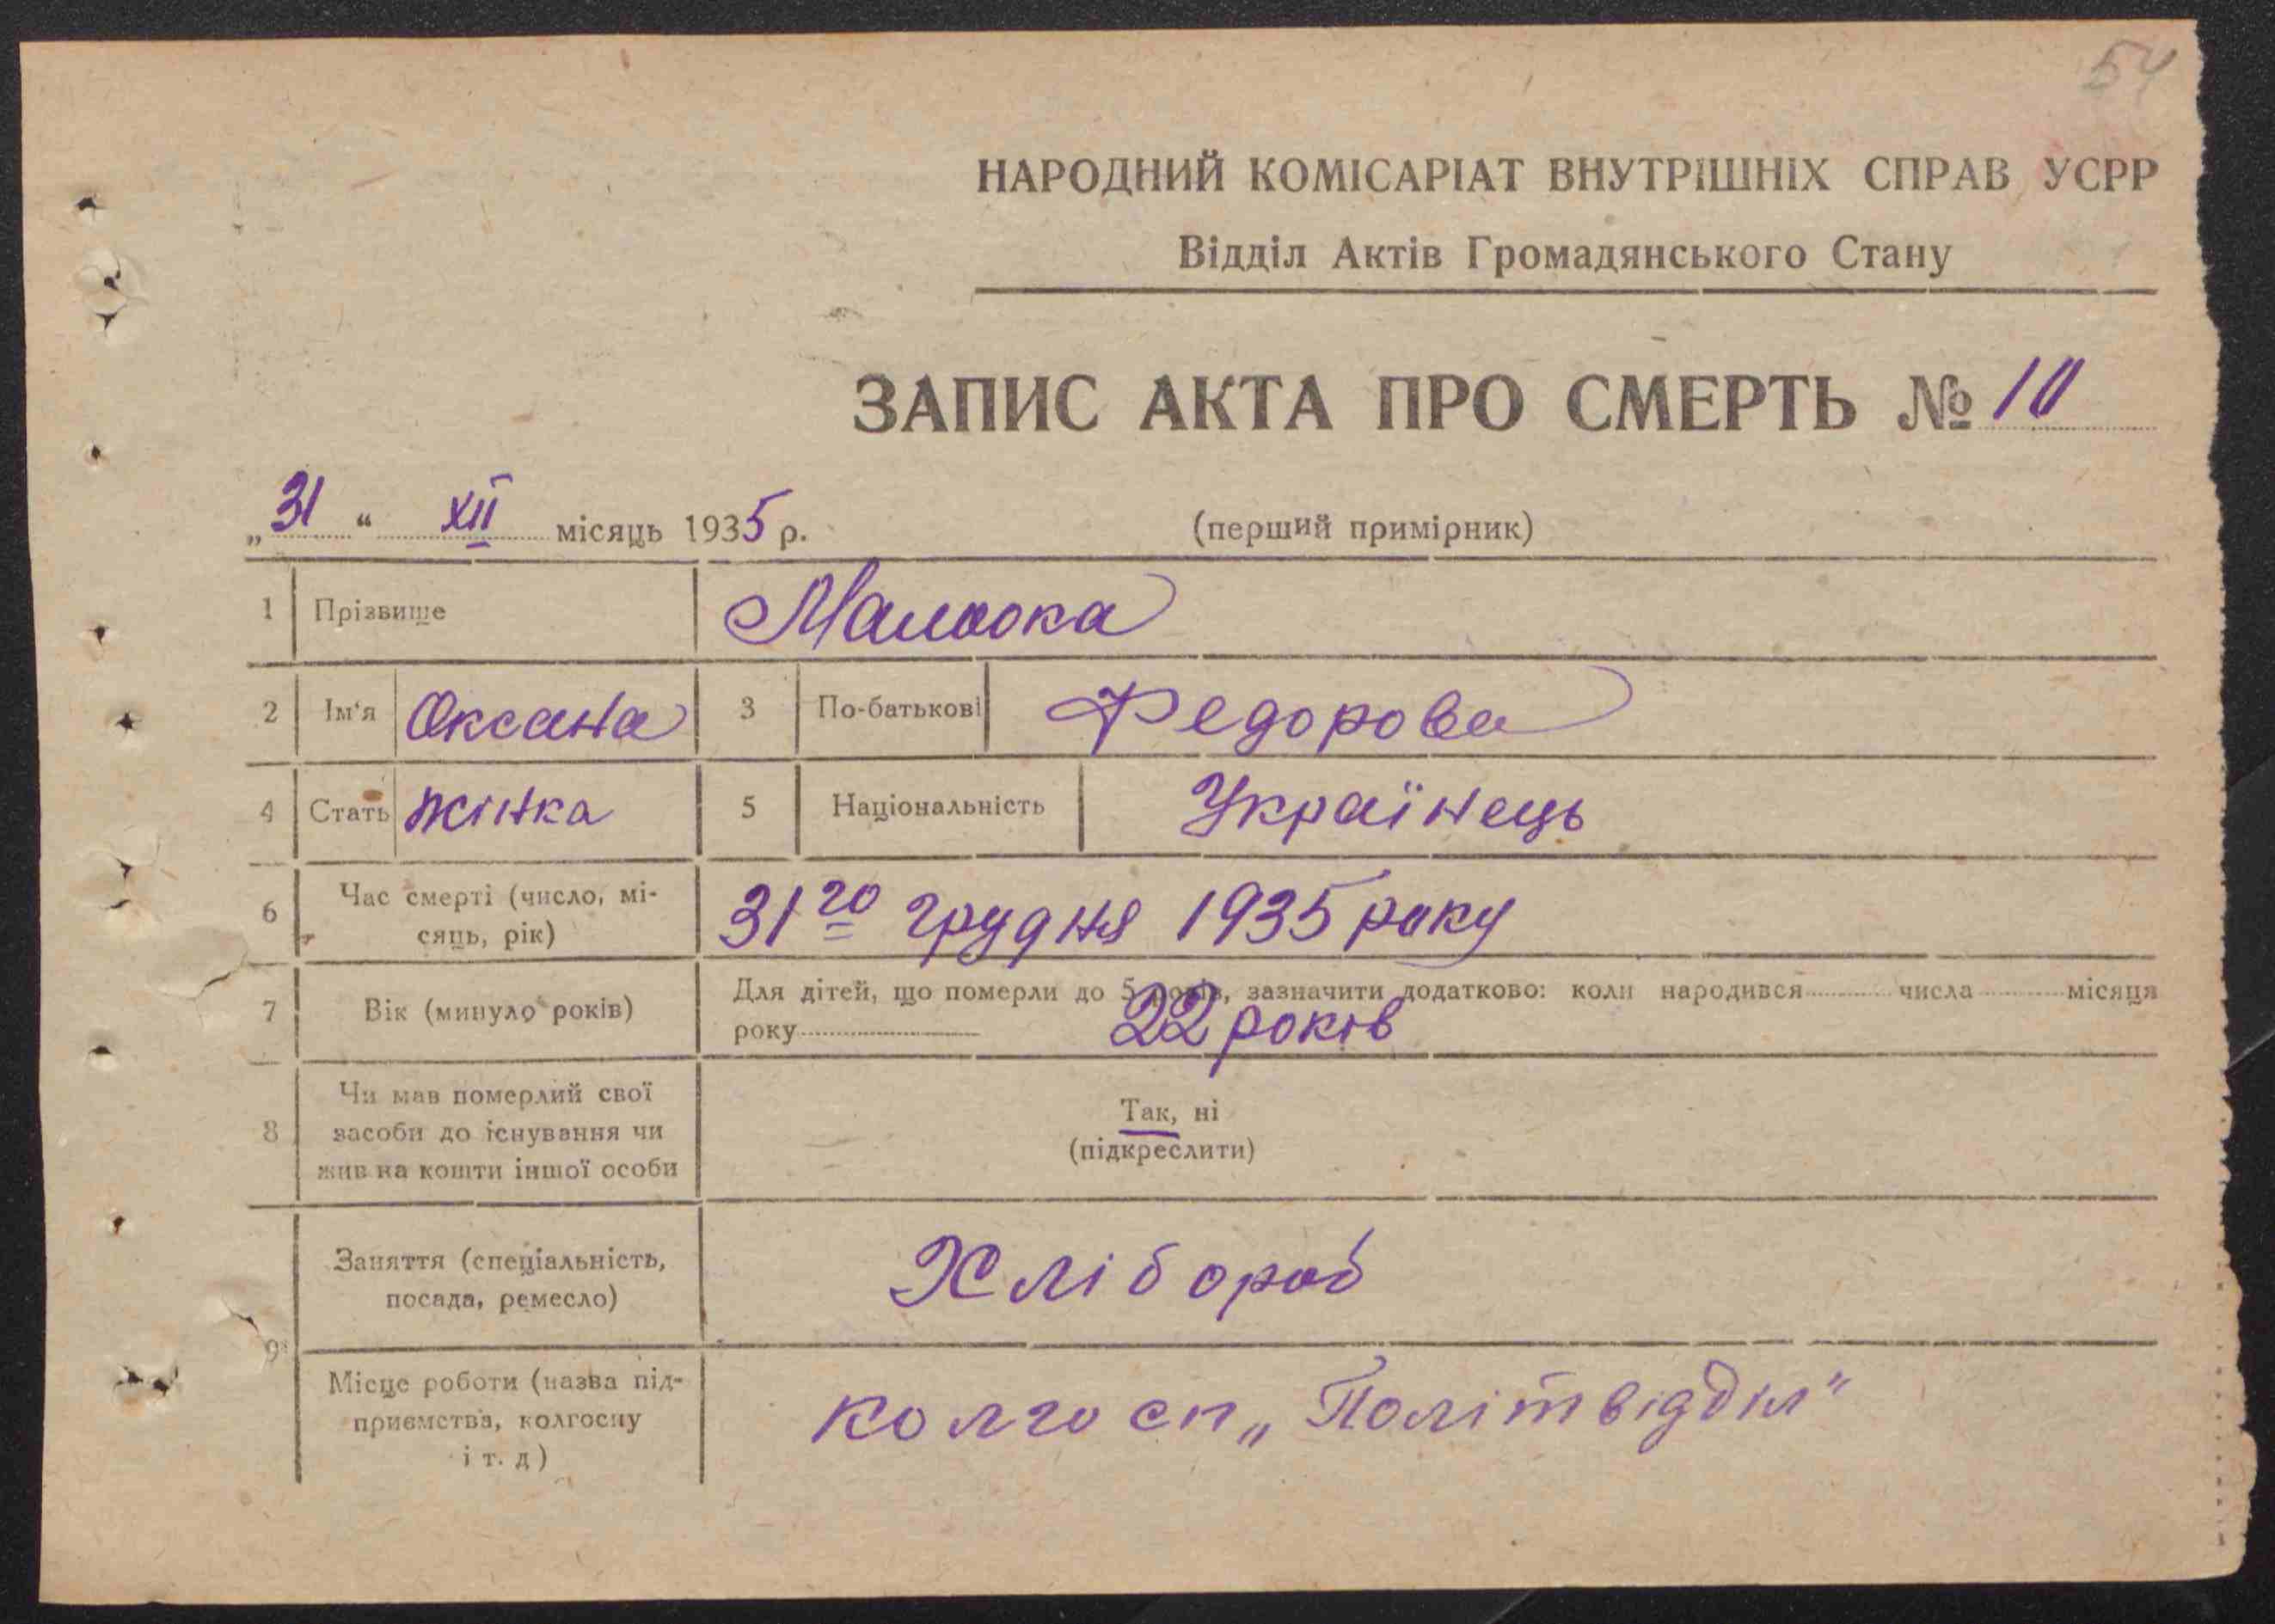 54
НАРОДНИЙ КОМІСАРІАТ ВНУТРІШНІХ СПРАВ УСРР
Відділ Актів Громадянського Стану
ЗАПИС АКТА ПРО СМЕРТЬ № 10
„31“ XII місяць 1935 р. (перший примірник)
1 Прізвище
2 Ім'я Оксана 3 По-батькові Федорова
4 Стать жінка 5 Національність Українець
6 Час смерті (число, мі-
сяць, рік) 31го грудня 1935 року
7 Вік (минуло років) Для дітей, що померли до 5 років, зазначити додатково: коли народився числа місяця
року 22 років
8 Чи мав померлий свої
засоби до існування чи
жив на кошти іншої особи
Так, ні
(підкреслити)
9 Заняття (спеціальність,
посада, ремесло) Хлібороб
Місце роботи (назва під-
приємства, колгоспу
і т. д) колгосп „Політвідділ"